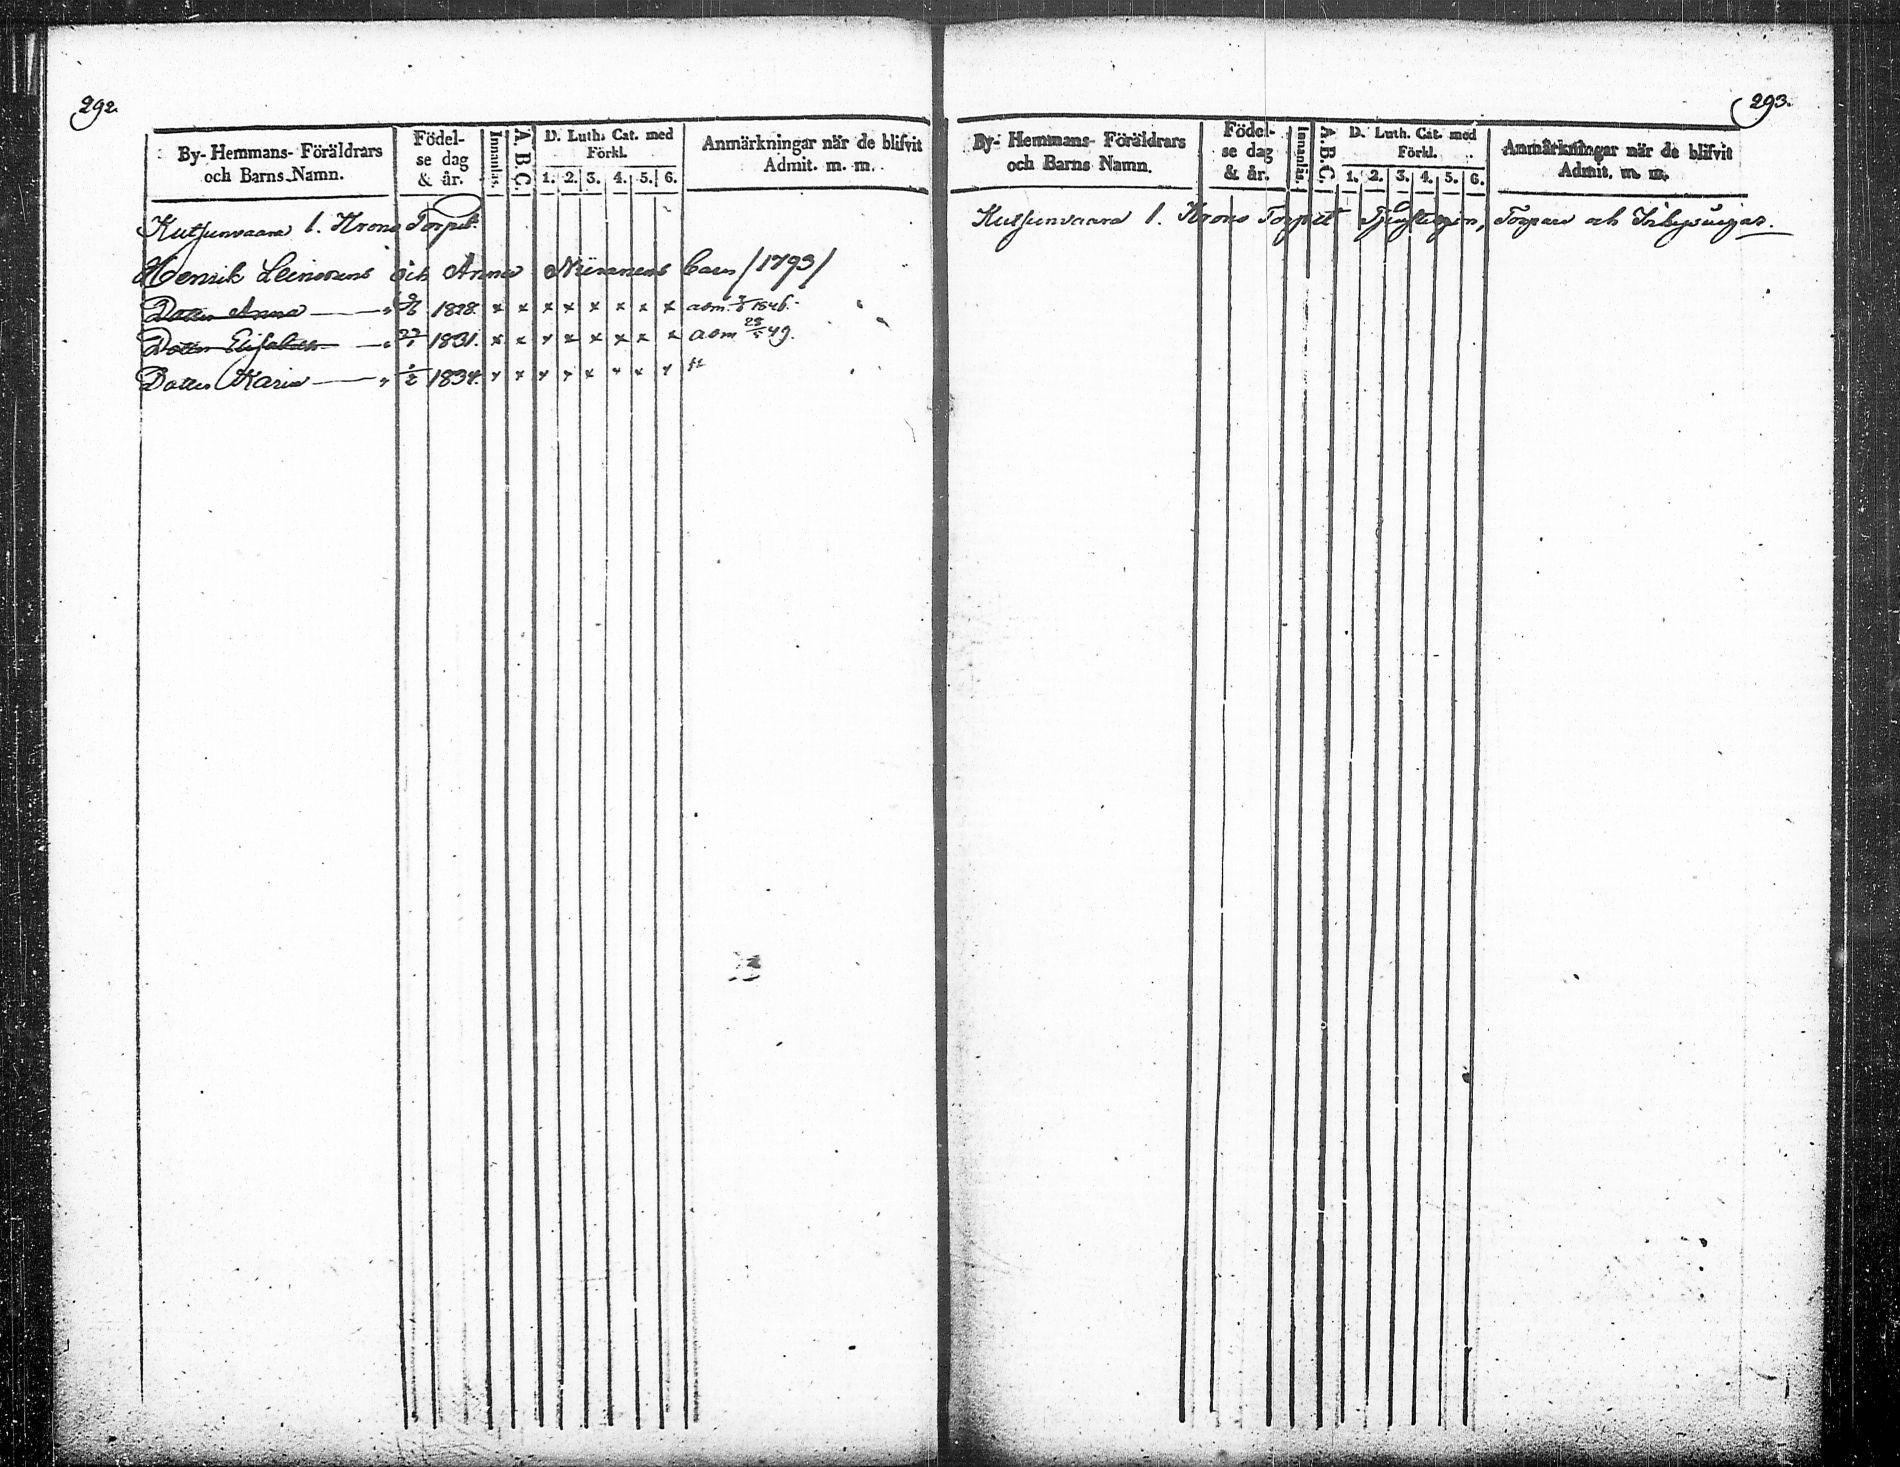 292.
By- Hemmans- Föräldrars och Barns Namn.
Födel- se dag & år.
Innanläs.
A. B. C.
D. Luth. Cat. med Förkl.
1. 2. 3. 4. 5. 6.
Anmärkningar när de blifvit Admit. m. m.
Kutsunvaara 1. Krono Torpet
Henrik Leinonens och Anna Niiranens barn /1793/
Dotter Anna 1828. x x x x x x x x adm. 1846.
Dotter Elisabet 27/1 1831. x x x x x x x x adm 49.
Dotter Karin 1/2 1834. x x x x x x x x
293.
By- Hemmans- Föräldrars och Barns Namn.
Födel- se dag & år.
Innanläs.
A. B. C.
D. Luth. Cat. med Förkl.
1. 2. 3. 4. 5. 6.
Anmärkningar när de blifvit Admit. m. m.
Kutsunvaara 1. Krono Torpet Tjenstegon, Torpare och Inhysingar.